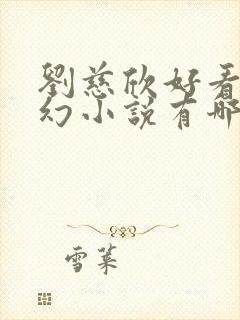 劉慈欣好看
幻小説有哪
雪葉